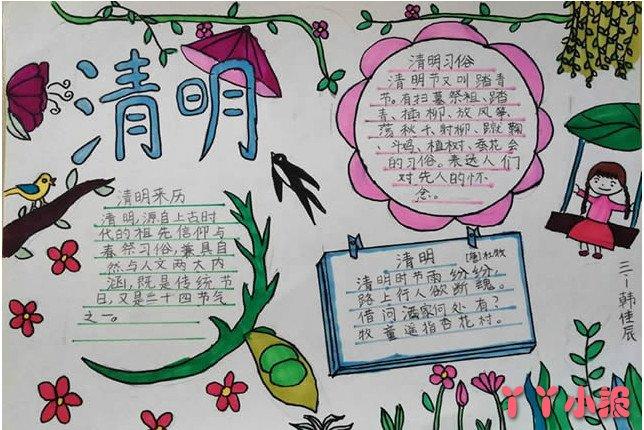 清明
清明习俗
清明节又叫踏青
节。有扫墓祭祖、踏
青、插柳、放风筝、
荡秋千、射柳、蹴鞠
、斗鸡、植树、蚕花会
的习俗。表达人们
对先人的怀
念。
清明来历
清明,源自上古时
代的祖先信仰与
春祭习俗,兼具自
然与人文两大内
涵,既是传统节
日,又是二十四节气
之一。
清明 [唐] 杜牧
清明时节雨纷纷,
路上行人欲断魂。
借问酒家何处有?
牧童遥指杏花村。
三-1韩佳辰
丫丫小报